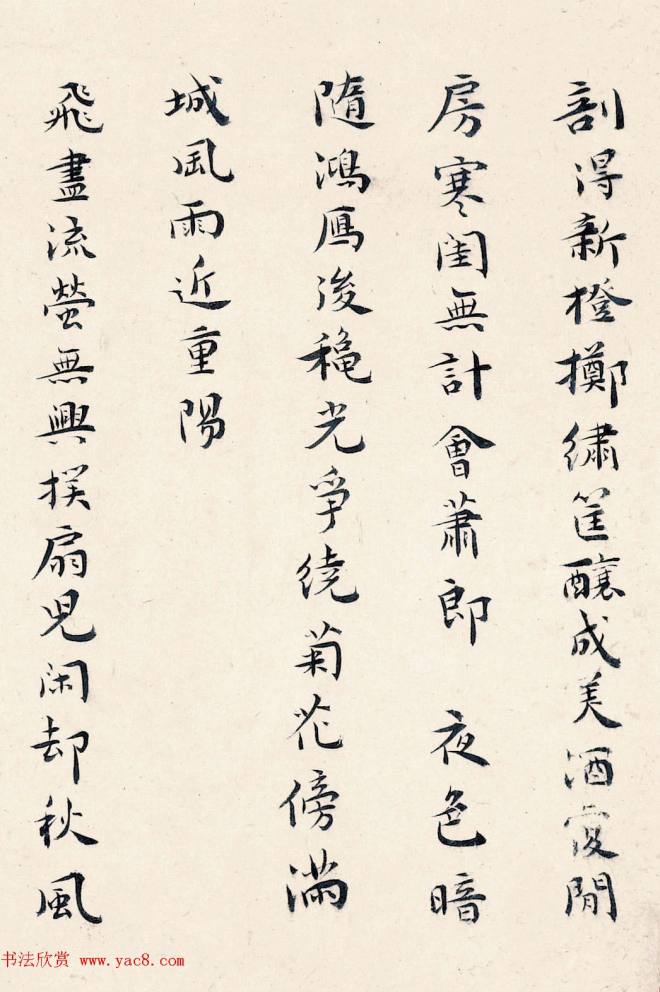 剖得新橙擲繡筐釀成美酒度閒
房寒閨無計會蕭郎　夜色暗
隨鴻雁後穐光爭繞菊花傍滿
城風雨近重陽
飛盡流螢無興撲扇兒閑却秋風
书法欣赏 www.yac8.com